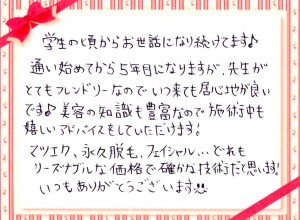 学生の頃からお世話になり続けてます♪
通い始めてから5年目になりますが、先生が
とてもフレンドリーなのでいつ来ても居心地が良い
です♪美容の知識も豊富なので施術中も
嬉しいアドバイスをしていただけます!
マツエク、永久脱毛、フェイシャル…どれも
リーズナブルな価格で確かな技術だと思います!
いつもありがとうございます